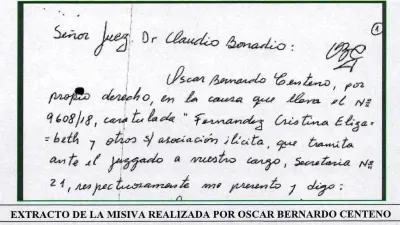 1
Señor Juez Dr Claudio Bonadio:
Oscar Bernardo Centeno, por
propio derecho, en la causa que lleva el Nº
9608/18, caratulada "Fernandez Cristina Eliza
=beth y otros s/ asociación ilícita, que tramita
ante el juzgado a vuestro cargo, Secretaria Nº
21, respectuosamente me presento y digo:
EXTRACTO DE LA MISIVA REALIZADA POR OSCAR BERNARDO CENTENO